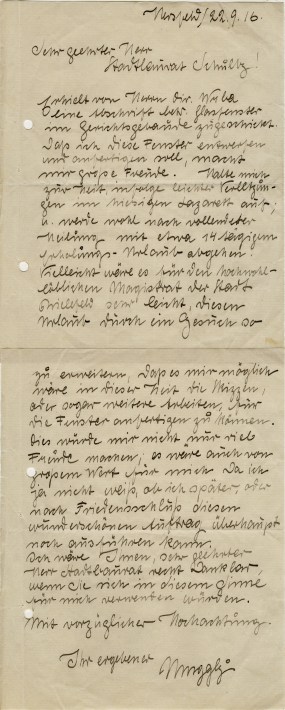 Hersfeld, 22.9.16.
Sehr geehrter Herr
Stadtbaurat Schultz!
Erhielt von Herrn Dir. Wrba
eine Abschrift betr. Glasfenster
im Gerichtsgebäude zugeschickt.
Daß ich diese Fenster entwerfen
und anfertigen soll, macht
mir große Freude. Halte mich
zur Zeit infolge leichter Verletzun-
gen im hiesigen Lazarett auf;
u. werde wohl nach vollendeter
Heilung mit etwa 14 tägigem
Erholungs-Urlaub abgehen.
Vielleicht wäre es für den hochwohl-
löblichen Magistrat der Stadt
Bielefeld sehr leicht, diesen
Urlaub durch ein Gesuch so
zu erweitern, daß es mir möglich
wäre in dieser Zeit die Skizzen,
oder sogar weitere Arbeiten, für
die Fenster anfertigen zu können.
Dies würde mir nicht nur viel
Freude machen; es wäre auch von
großem Wert für mich. Da ich
ja nicht weiß, ob ich später, oder
nach Friedensschluß diesen
wunderschönen Auftrag überhaupt
noch ausführen kann.
Ich wäre Ihnen, sehr geehrter
Herr Stadtbaurat recht dankbar,
wenn Sie sich in diesem Sinne
für mich verwenden würden.
Mit vorzüglicher Hochachtung.
Ihr ergebener